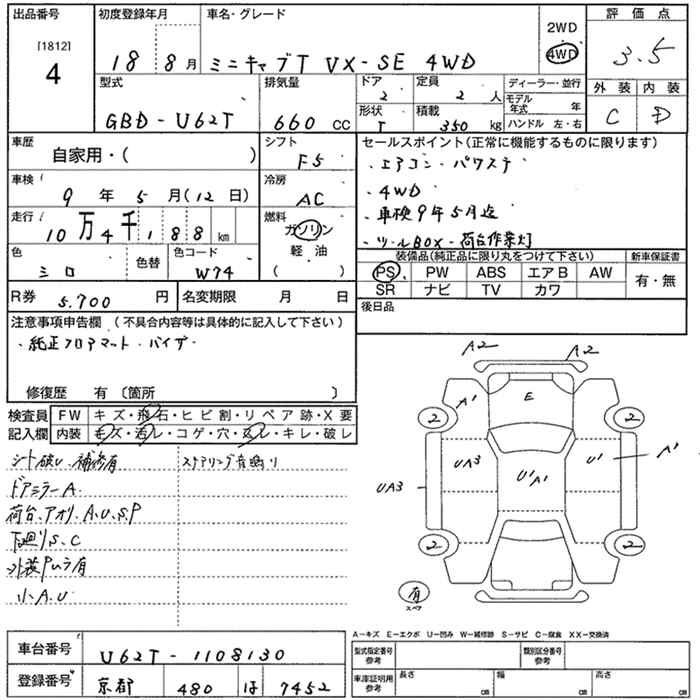 出品番号
[1812]
4
初度登録年月
18 8月
車名・グレード
ミニキャブT VX-SE 4WD
2WD
4WD
評価点
3.5
外装 内装
C D
型式
GBD-U62T
排気量
660 CC
ドア
2
定員
2 人
形状
T
積載
350 kg
ディーラー・並行
モデル年式 年
ハンドル 左・右
車歴
自家用・( )
シフト
F5
セールスポイント(正常に機能するものに限ります)
・エアコン・パワステ
・4WD
・車検9年5月迄
・ツールBOX・荷台作業灯
車検
9年5月(12日)
冷房
AC
走行
10万4千188km
燃料
ガソリン
軽油
( )
色
シロ
色替
色コード
W74
装備品(純正品に限り丸をつけて下さい)
PS PW ABS エアB AW
SR ナビ TV カワ
新車保証書
有・無
R券 5,700 円
名変期限 月 日
後日品
注意事項申告欄(不具合内容等は具体的に記入して下さい)
・純正フロアマット・バイザー
修復歴 有〔箇所 〕
検査員
記入欄
FW キズ・飛石・ヒビ割・リペア跡・X要
内装 キズ・汚レ・コゲ・穴・スレ・キレ・破レ
シート破レ、補修有
ステアリング
ドアミラーA
荷台、アオリ、A、U、S、P
下廻りS、C
外装Pムラ有
小A、U
A2 A2
E
A1
2 2
UA3 UA3 U1 A1 U1 A1
2 2
有
スペア
A-キズ E-エクボ U-凹み W-補修跡 S-サビ C-腐食 XX-交換済
車台番号 U62T-1108130
登録番号 京都 480 ほ 7452
型式指定番号
参考
類別区分番号
参考
車庫証明用
参考
長さ cm
幅 cm
高さ cm